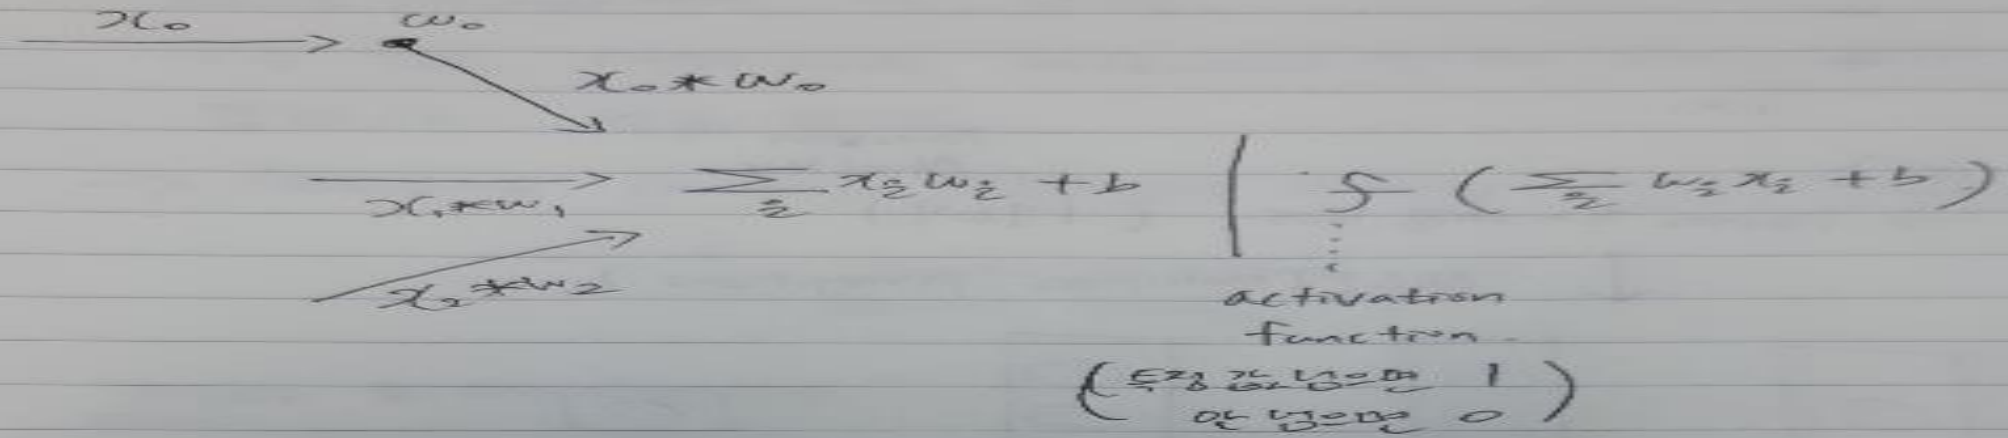 x₀ w₀
x₀ * w₀
x₁ * w₁
∑ᵢ xᵢ wᵢ + b | f ( ∑ᵢ wᵢ xᵢ + b )
x₂ * w₂
activation
function
( 특정 값 넘으면 1
안 넘으면 0 )